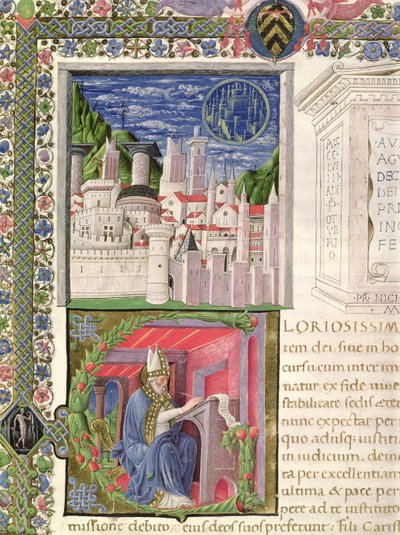 AV
AGV
DEC
DEI
PRI
INC
FE
·PR· NICH
LORIOSISSIM
tem dei, siue in ho
cursu cum inter im
natur ex fide uiue
stabilitate sedis eter
nunc expectat per
quo adusq; iustiti
in iudicium, dein
ra per excellentiam
ultima & pace per
pere ad te instituto
missione debito, eius deos suos preferunt: Fili Cariss